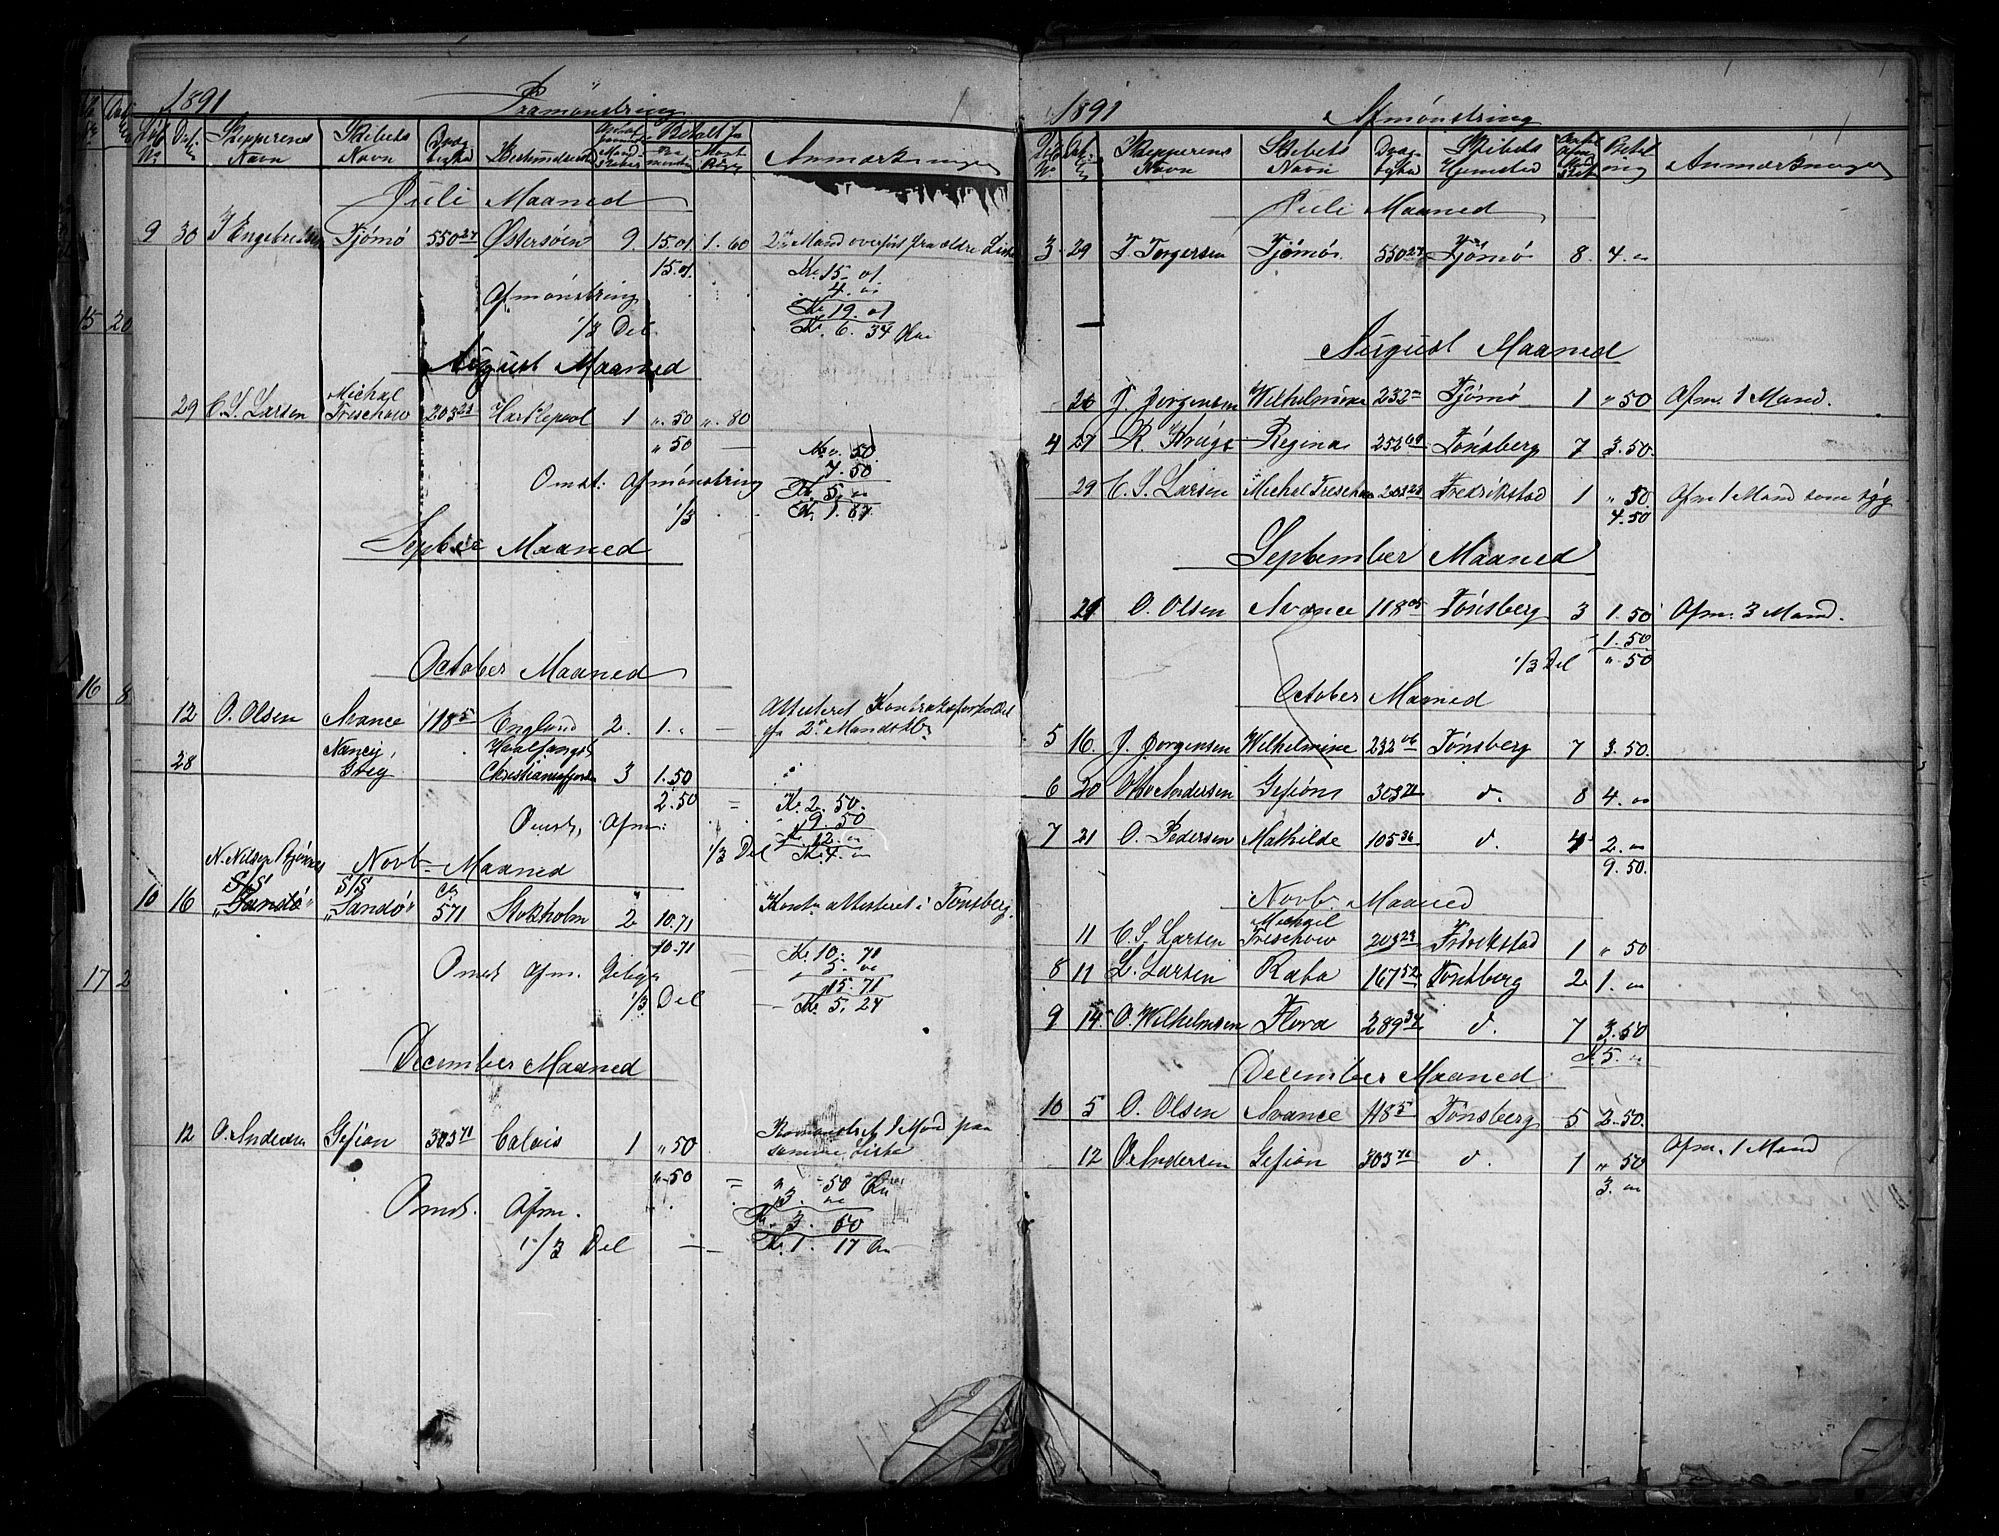 1891 Paamønstring
Løb No Dat. Skipperens Navn Skibets Navn Dræg- tighed Bestemmelse Anmærkninger
Juli Maaned
9 30 Tjømø 550 27 Østersøen 9 15.01 1.60 2 Mand overført fra ældre Liste
15.01 Kr. 15.01
Afmønstring 4. "
Kr. 19.01
1/3 Del Kr. 6.34 Øre
August Maaned
29 C. S. Larsen Michael Treschow 203 23 Hartlepool 1 ".50 ".80
".50 — Kr. ".50
Omst: Afmønstring
Kr. 5. "
1/3 Kr. 1.67
Septbr Maaned
October Maaned
12 O. Olsen Avance 118 5 England 2. 1. " — Attesteret
28 Nancy Grey Hvalfangst Christianiafjorden 3 1.50
2.50 = Kr. 2.50.
Omst. Afm: 9.50
Kr. 12. "
1/3 Del Kr. 4. "
Novb. Maaned
N. Nilsen
10 16 S/S "Sandø" S/S "Sandø" 571 Stokholm 2 10.71 attesteret i Tønsberg.
10.71 Kr. 10.71
Omst. Afm. 5. "
15.71
1/3 Del — Kr. 5.24
December Maaned
12 O. Andersen Gefion 303 71 Calais 1 ".50 1 Mand paa samme Liste
".50 = ".50
Omst. Afm. 3. "
Kr. 3.50
1/3 Del — Kr. 1.17
15 20
16 8
17 2
1891 Afmønstring
Løb No Dat. Skipperens Navn Skibets Navn Dræg- tighed Skibets Hjemsted Betal- ing Anmærkninger
Juli Maaned
3 29 T. Torgersen Tjømø 550 27 Tjømø 8. 4. "
August Maaned
20 J. Jørgensen Wilhelmine 232 Tjømø 1 ".50 Afm. 1 Mand.
4 27 R. Regina 252 69 Tønsberg 7 3.50.
29 C. S. Larsen Michal Treschow 203 23 Fredrikstad 1 ".50 Afm 1 Mand som syg
4.50
September Maaned
29 O. Olsen Avance 118 05 Tønsberg 3 1.50 Afm. 3 Mand.
1.50
1/3 Del ".50
October Maaned
5 16. J. Jørgensen Wilhelmine 232 06 Tønsberg 7 3.50.
6 20 Otto Andersen Gefion 303 71 d. 8 4. "
7 21 O. Pedersen Mathilde 105 36 d. 4 2. "
9.50.
Novb. Maaned
11 C. S. Larsen Michael Treschow 203 23 Fredrikstad 1 ".50
8 11 L. Larsen Rata 167 52 Tønsberg 2 1. "
9 14 O. Wilhelmsen Flora 289 34 d. 7 3.50
Kr. 5. "
December Maaned
10 5 O. Olsen Avance 118 5 Tønsberg 5 2.50.
12 O. Andersen Gefion 303 71 d. 1 ".50 Afm. 1 Mand
3. "